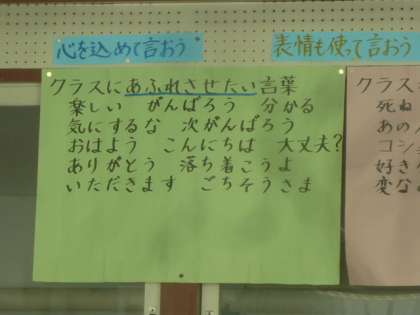 心を込めて言おう
表情も使って言おう
クラスにあふれさせたい言葉
楽しい がんばろう 分かる
気にするな 次がんばろう
おはよう こんにちは 大丈夫?
ありがとう 落ち着こうよ
いただきます ごちそうさま
クラス
死ね
あの
コシ
好き
変な